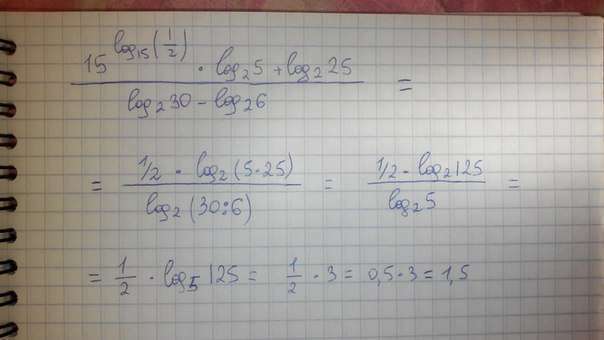 15^(log₁₅(1/2)) · log₂5 + log₂25 / log₂30 - log₂6 =
= 1/2 · log₂(5·25) / log₂(30:6) = 1/2 · log₂125 / log₂5 =
= 1/2 · log₅125 = 1/2 · 3 = 0,5·3 = 1,5